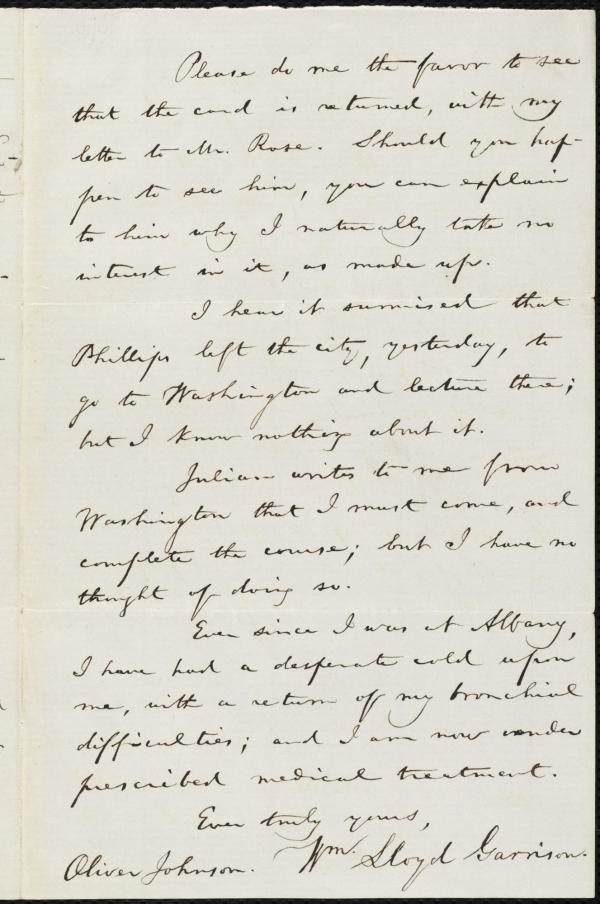 Please do me the favor to see
that the card is returned, with my
letter to Mr. Rose. Should you hap-
pen to see him, you can explain
to him why I naturally take no
interest in it, as made up.
I hear it surmised that
Phillips left the city, yesterday, to
go to Washington and lecture there;
but I know nothing about it.
Julian writes to me from
Washington that I must come, and
complete the course; but I have no
thought of doing so.
Ever since I was at Albany,
I have had a desperate cold upon
me, with a return of my bronchial
difficulties; and I am now under
prescribed medical treatment.
Ever truly yours,
Oliver Johnson. Wm. Lloyd Garrison.